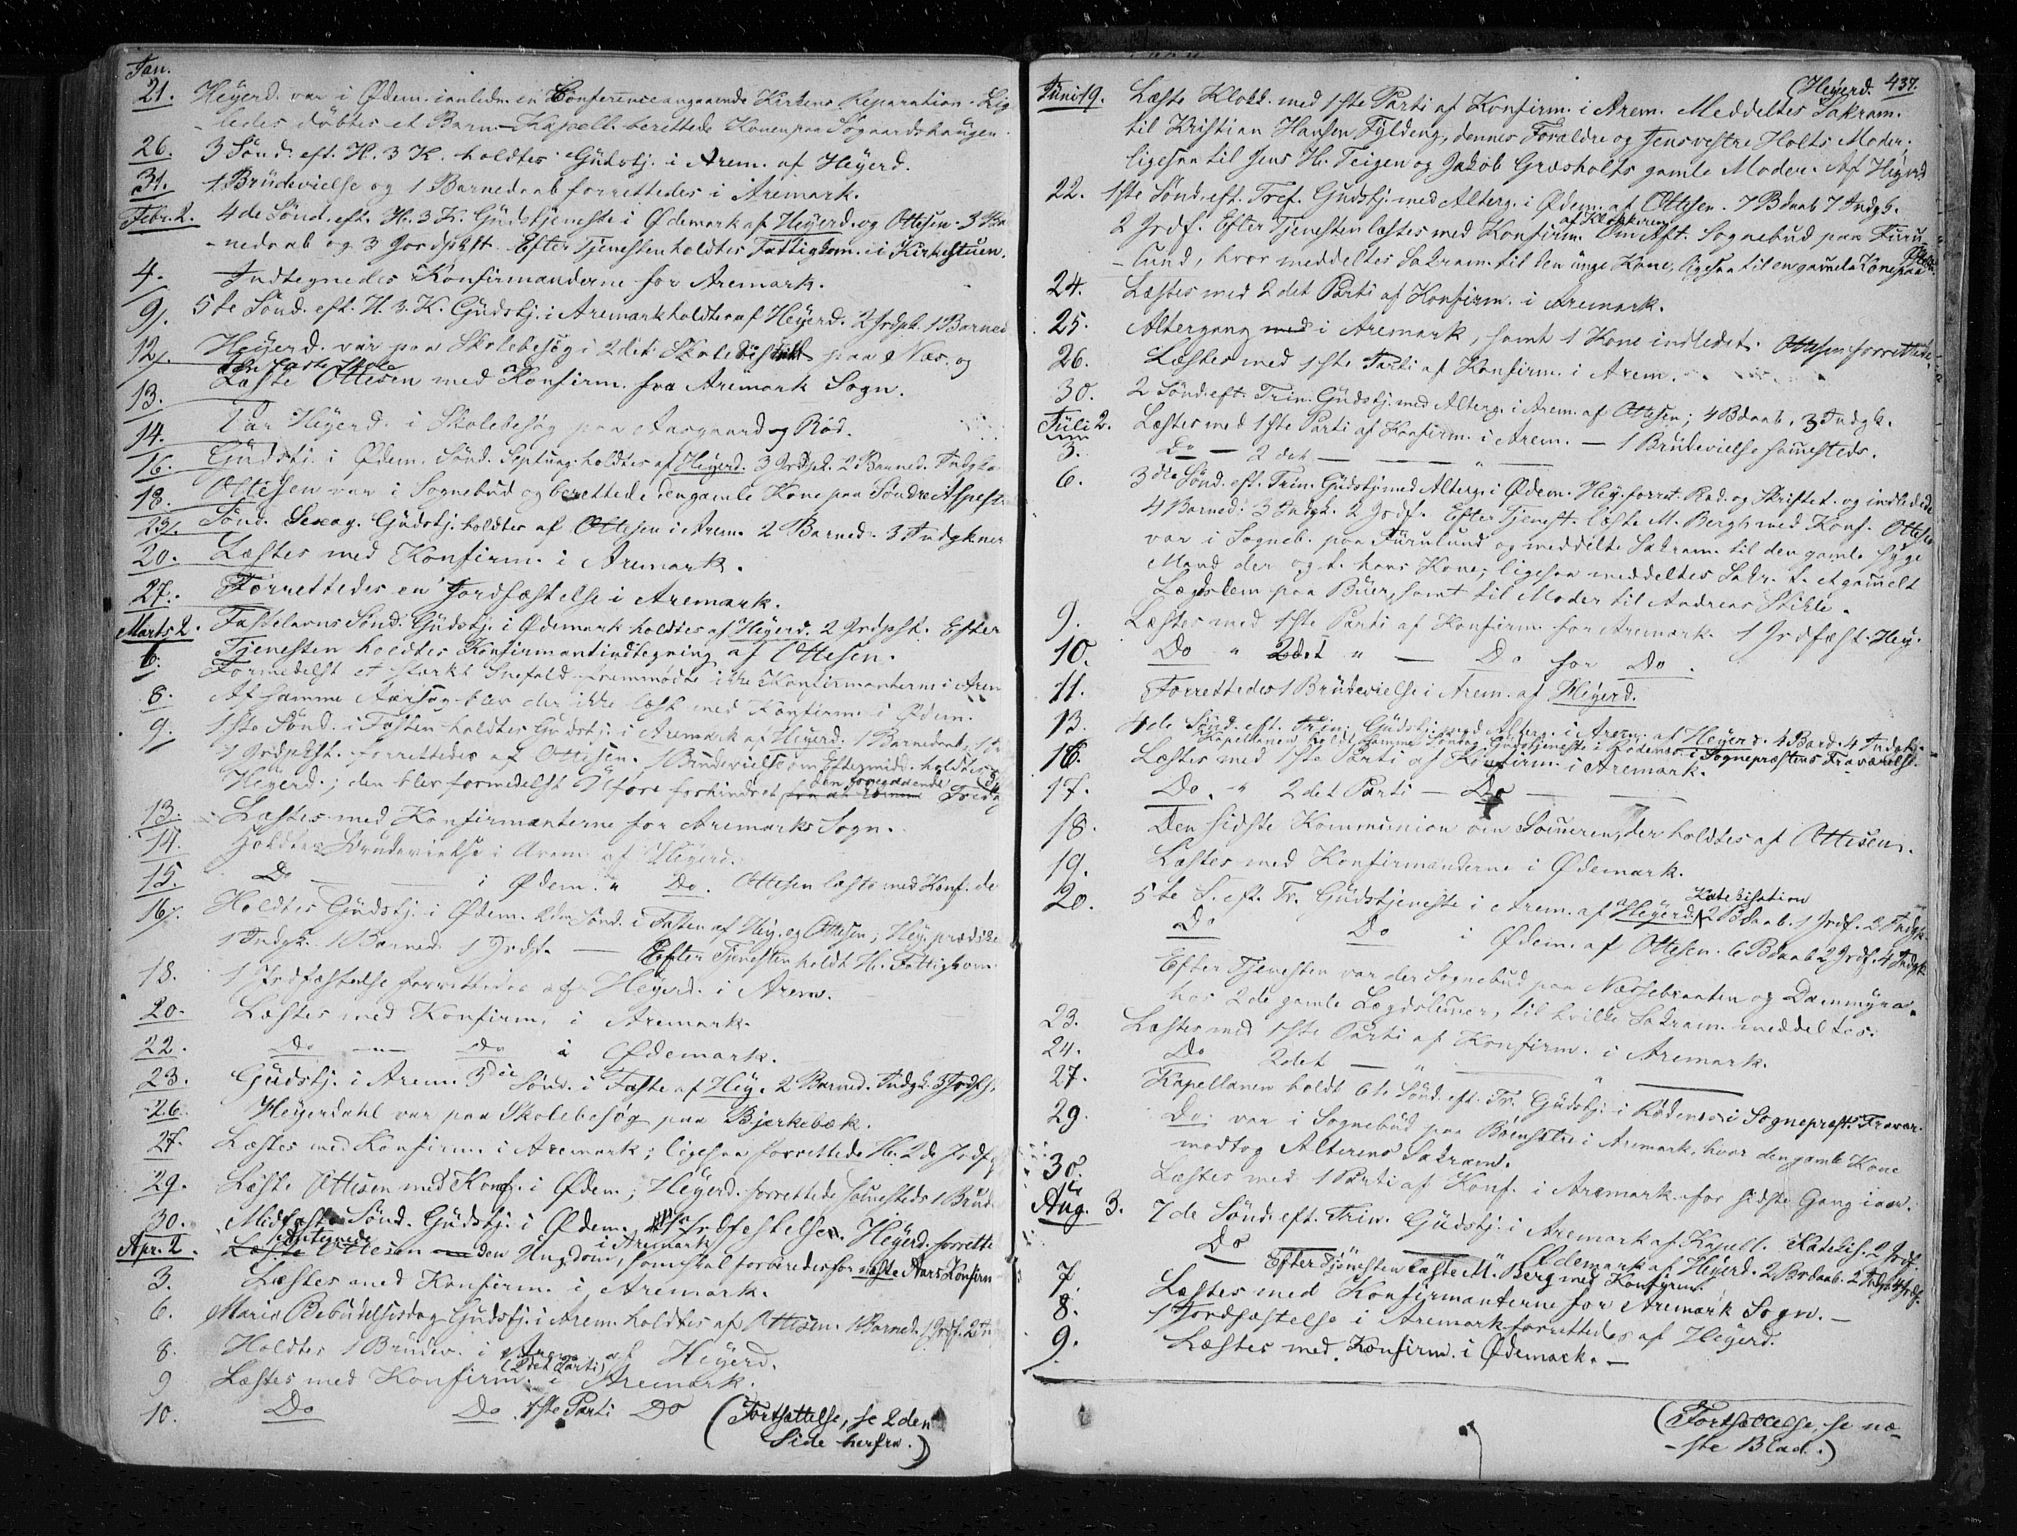 Jan.
21. Heyerd. var i Ødem. ianledn. en Conference angaaende Kirkens Reparation. Lig-
ledes døbtes et Barn. Kapell. berettede Konen paa Søgaardshaugen.
26. 3 Sønd. eft. H. 3 K. holdtes Gudstj. i Arem. af Heyerd.
31. 1 Brudevielse og 1 Barnedaab forrettedes i Aremark.
Febr. 2. 4de Sønd. eft. H. 3 K. Gudstjeneste i Ødemark af Heyerd. og Ottesen. 3 Bar-
nedaab og 3 Jordpkst. Efter Tjenesten holdtes Fattigkom. i Kirkestuen.
4. Indtegnedes Konfirmanderne for Aremark.
9. 5te Sønd. eft. H. 3. K. Gudstj. i Aremark holdtes af Heyerd. 2 Jrdpk. 1 Barned
12. Heyerd. var paa Skolebesøg i 2det Skoledistrikt paa Næs. og
13. Læste Ottesen med Konfirm. fra Aremark Sogn.
14. Var Heyerd. i Skolebesøg paa Aasgaard og Rød.
16. Gudstj. i Ødem. Sønd. Septuag. holdtes af Heyerd. 3 Jrdpk. 2 Barned. Indgk.
18. Ottesen var i Sognebud og berettede den gamle Kone paa Søndre Aspest
23. Sønd. Sexag. Gudstj. holdtes af Ottesen i Arem. 2 Barned. 3 Indgkner
20. Læstes med Konfirm. i Aremark.
27. Forrettedes en Jordfæstelse i Aremark.
Marts 2. Fastelavns Sønd. Gudstj. i Ødemark holdtes af Heyerd. 2 Jrdpkst. Efter
Tjenesten holdtes Konfirmantindtegning af Ottesen.
6. Formedelst et stærkt Snefald fremmødte ikke Konfirmanterne i Arem
8. Af samme Aarsag blev der ikke læst med Konfirm. i Ødem.
9. 1ste Sønd. i Fasten holdtes Gudstj. i Aremark af Heyerd. 1 Barnedaab,
1 Jrdpkst. forrettedes af Ottesen. 1 Brudevielse om Eftermidd. holdtes
Heyerd.; den blev formedelst Uføre forhindret den foregaaende Freda
13. Læstes med Konfirmanterne for Aremarks Sogn.
14. Holdtes Brudevielse i Arem. af Heyerd.
15. Do i Ødem. " Do. Ottesen læste med Konf. de
16. Holdtes Gudstj. i Ødem. 2den Sønd. i Fasten af Hey. og Ottesen; Hey. prædike
1 Indgk. 1 Barned. 1 Jrdf. — Efter Tjenesten holdt H. Fattigkom
18. 1 Jrdfæstelse forrettedes af Heyerd. i Arem.
20. Læstes med Konfirm. i Aremark.
22. Do — Do i Ødemark.
23. Gudstj. i Arem. 3die Sønd. i Faste af Hey. 2 Barned. Indgk. Jrdfst.
26. Heyerdahl var paa Skolebesøg paa Bjerkebæk.
27. Læstes med Konfirm. i Aremark; ligesaa forrettede H. 2de Jrdf
29. Læste Ottesen med Konf. i Ødem; Heyerd. forrettede sammesteds 1 Brud
30. Midfaste Sønd. Gudstj. i Ødem. Jrdfæstelse. Heyerd. forrette
Apr. 2. antegnede i Aremark
Læste Ottesen den Ungdom, som skal forberedes for næste Aars Konfirm
3. Læstes med Konfirm. i Aremark.
6. Mariæ Bebudelsesdag Gudstj. i Arem. holdtes af Ottesen. 1 Barned. 1 Jrdf. 2 In
8. Holdtes 1 Brudev. i Arem af Heyerd.
9 Læstes med Konfirm. (2det Parti) i Aremark.
10. Do Do. 1ste Parti Do (Fortsættelse, se 2den
Side herfra.)
(Heyerd. 437.
Juni 19. Læste Klokk. med 1ste Parti af Konfirm. i Arem. Meddeltes Sakram.
til Kristian Hansen Fylding, dennes Forældre og Jens vestre Holts Moder;
ligesaa til Jens H. Teigen og Jakob Græsholts gamle Moder. Af Heyerd
22. 1ste Sønd. eft. Tref. Gudstj. med Alterg. i Ødem. af Ottesen. 7 Bdaab 7 Indgk.
2 Jrdf. Efter Tjenesten læstes med Konfirm. af Klokkeren Om Aft. Sognebud paa Furu-
lund, hvor meddeltes Sakram. til den unge Kone, ligesaa til en gammel Kone paa
24. Læstes med 2det Parti af Konfirm. i Aremark.
25. Altergang i Aremark, samt 1 Kone indledet. Ottesen forrettede.
26. Læstes med 1ste Parti af Konfirm. i Arem.
30. 2 Sønd. eft. Trin. Gudstj. med Alterg. i Arem. af Ottesen; 4 Bdaab, 3 Indgk.
Juli 2. Læstes med 1ste Parti af Konfirm. i Arem. — 1 Brudevielse sammesteds.
3. Do — 2det — "
6. 3die Sønd. eft. Trin. Gudstj. med Alterg. i Ødem. Hey. forret. Præd. og Skriftet. og indledede
4 Barned. 3 Indgk. 2 Jrdf. Efter Tjenest. læste M. Berg med Konf. Ottese
var i Sogneb. paa Furulund og meddelte Sakram. til den gamle syge
Mand der og t. hans Kone; ligesaa meddeltes Sakr. t. et gammelt
Lægdslem paa Buer, samt til Moder til Andreas Stikle.
9. Læstes med 1ste Parti af Konfirm. for Aremark. 1 Jrdfæst. Hey.
10. Do " 2det " — Do for Do.
11. Forrettedes 1 Brudevielse i Arem. af Heyerd.
13. 4de Sønd. eft. Trin. Gudstj. med Alterg. i Arem. af Heyerd. 4 Bard. 4 Indgk.
Kapellanen holdt samme Søndag Gudstjeneste i Rødenæs i Sognepræstens Fraværelse.
16. Læstes med 1ste Parti af Konfirm. i Aremark.
17. Do. " 2det Parti — Do —
18. Den sidste Kommunion om Sommeren, der holdtes af Ottesen.
19. Læstes med Konfirmanderne i Ødemark.
20. 5te S. eft. Tr. Gudstjeneste i Arem. af Heyerd. Katekisation 2 Bdaab. 1 Jrdf. 2 Indgk.
Do Do i Ødem. af Ottesen. 6 Bdaab 2 Jrdf. 4 Indgk
Efter Tjenesten var der Sognebud paa Næssebraaten og Dammyra
hos 2de gamle Lægdslemmer, til hvilke Sakram. meddeltes.
23. Læstes med 1ste Parti af Konfirm. i Aremark.
24. Do 2det — " — "
27. Kapellanen holdt 6te Sønd. eft. Tr. Gudstj. i Rødenæs i Sognepræst. Fravær.
29. Do. var i Sognebud paa Brensætre i Aremark, hvor den gamle Kone
modtog Alterens Sakram.
30. Læstes med 1 Parti af Konf. i Aremark for sidste Gang iaar.
Aug. 3. 7de Sønd. eft. Trin. Gudstj. i Aremark af Kapell. Katekis. 2 Jrdf.
Do — Ødemark af Heyerd. 2 Bdaab. 2 Indgk. 4 Jrdf.
Efter Tjenesten læste M. Berg med Konfirm.
7. Læstes med Konfirmanterne for Aremark Sogn. —
8. 1 Jordfæstelse i Aremark forrettedes af Heyerd.
9. Læstes med Konfirm. i Ødemark. —
(Fortsættelse, se næ-
ste Blad.)